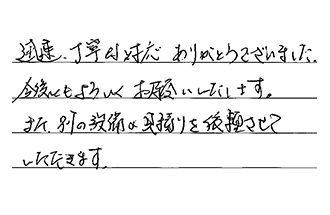 迅速、丁寧な対応 ありがとうございました。
今後ともよろしくお願いいたします。
また、別の設備の見積りを依頼させて
いただきます。